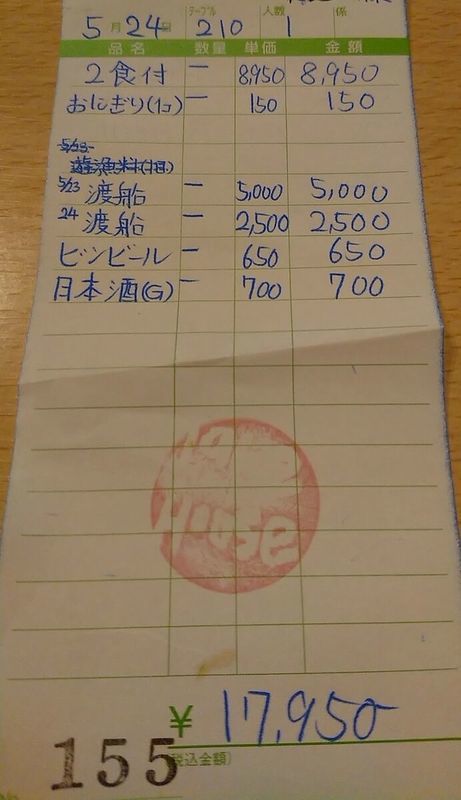 5月24日 テーブル 210 人数 1 係
品名 数量 単価 金額
2食付 一 8,950 8,950
おにぎり(1コ) 一 150 150
5/23
遊漁料
5/23 渡船 一 5,000 5,000
24 渡船 一 2,500 2,500
ビンビール 一 650 650
日本酒(G) 一 700 700
¥ 17,950
(税込金額)
155